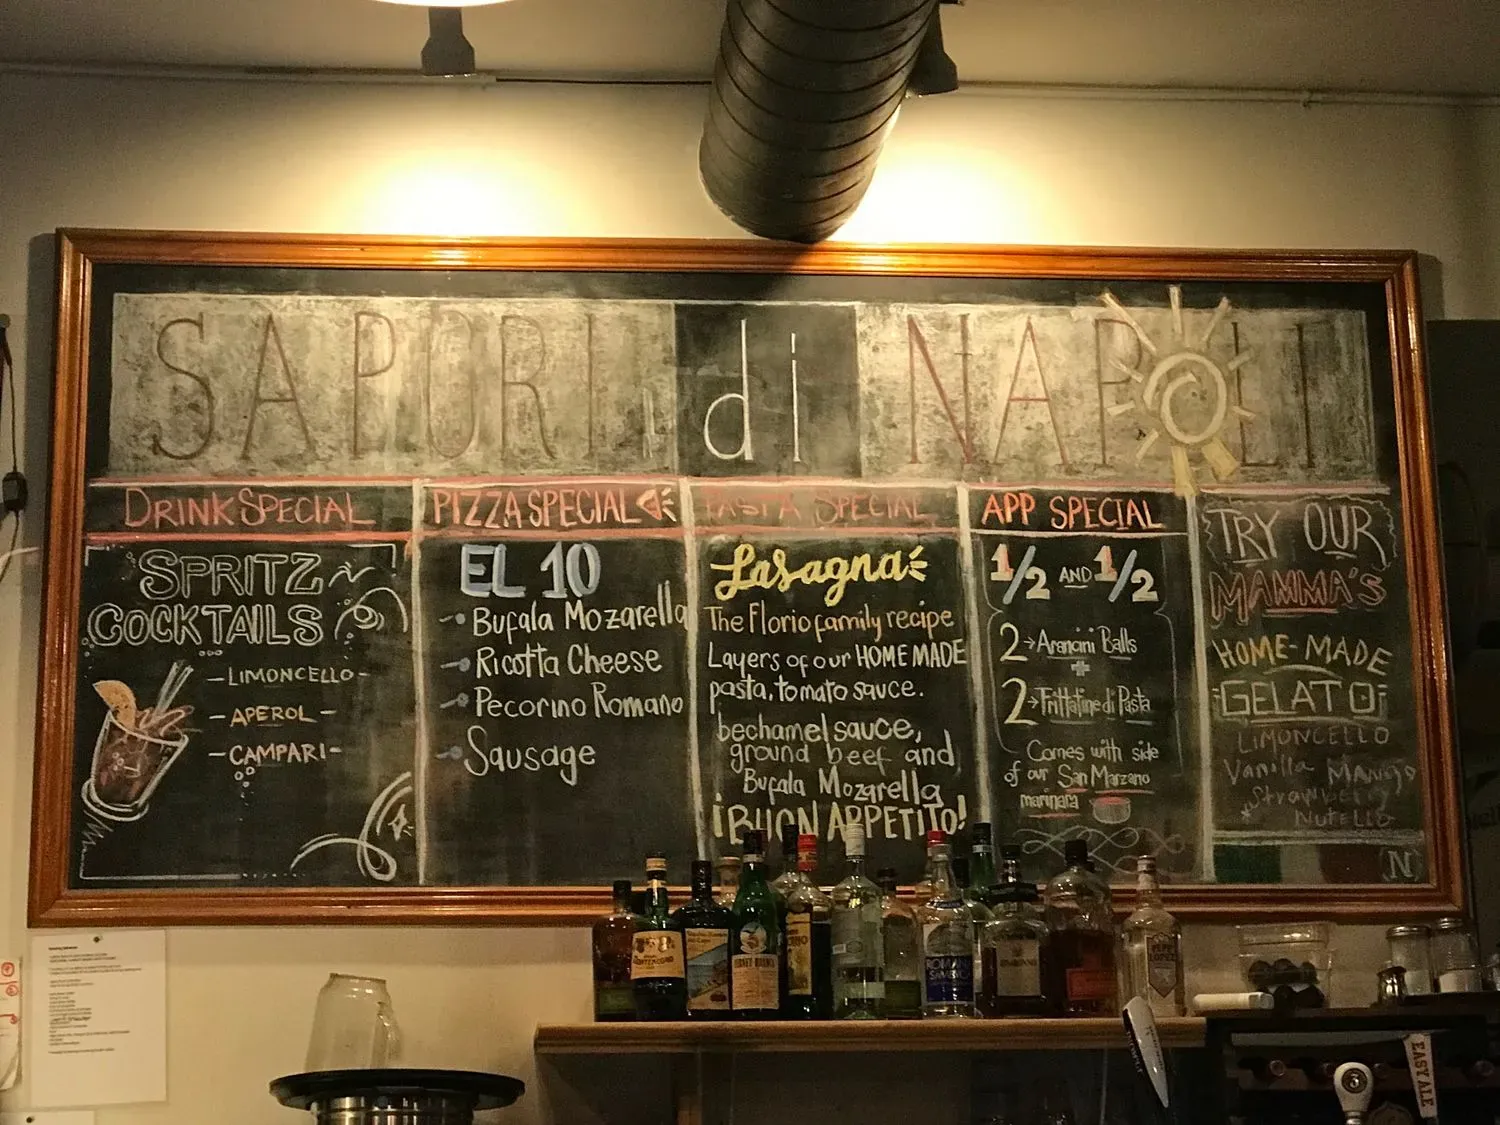 SAPORI di NAPOLI
DRINK SPECIAL
SPRITZ
COCKTAILS
- LIMONCELLO -
- APEROL -
- CAMPARI -
PIZZA SPECIAL
EL 10
Bufala Mozarella
Ricotta Cheese
Pecorino Romano
Sausage
PASTA SPECIAL
Lasagna
The Florio family recipe
Layers of our HOME MADE
pasta, tomato sauce.
bechamel sauce,
ground beef and
Bufala Mozarella
¡BUON APPETITO!
APP SPECIAL
1/2 AND 1/2
2 → Arancini Balls
+
2 → Frittatine di Pasta
Comes with side
of our San Marzano
marinara
TRY OUR
MAMMA'S
HOME-MADE
GELATO
LIMONCELLO
Vanilla MANGO
Strawberry
NUTELLA
N
FERNET-BRANCA
ROMANA
SAMBUCA
PEPE
LOPEZ
EASY ALE
3